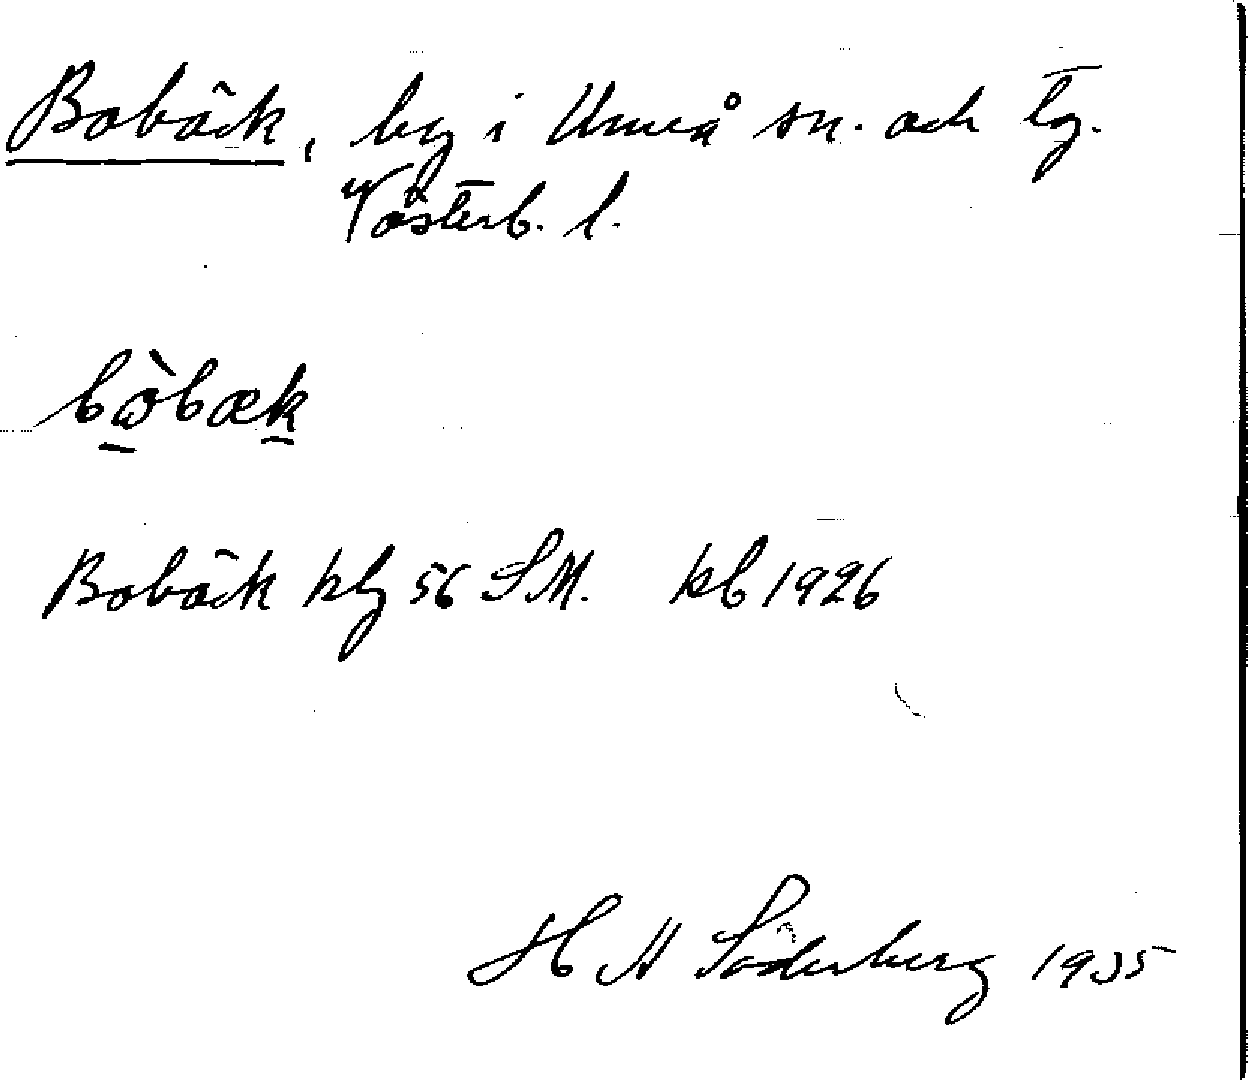 Bobäck, by i Umeå sn. och tg.
Västerb. l.
bὼbæk
Bobäck kbg 56 SM. kb 1926
H H Söderberg 1935